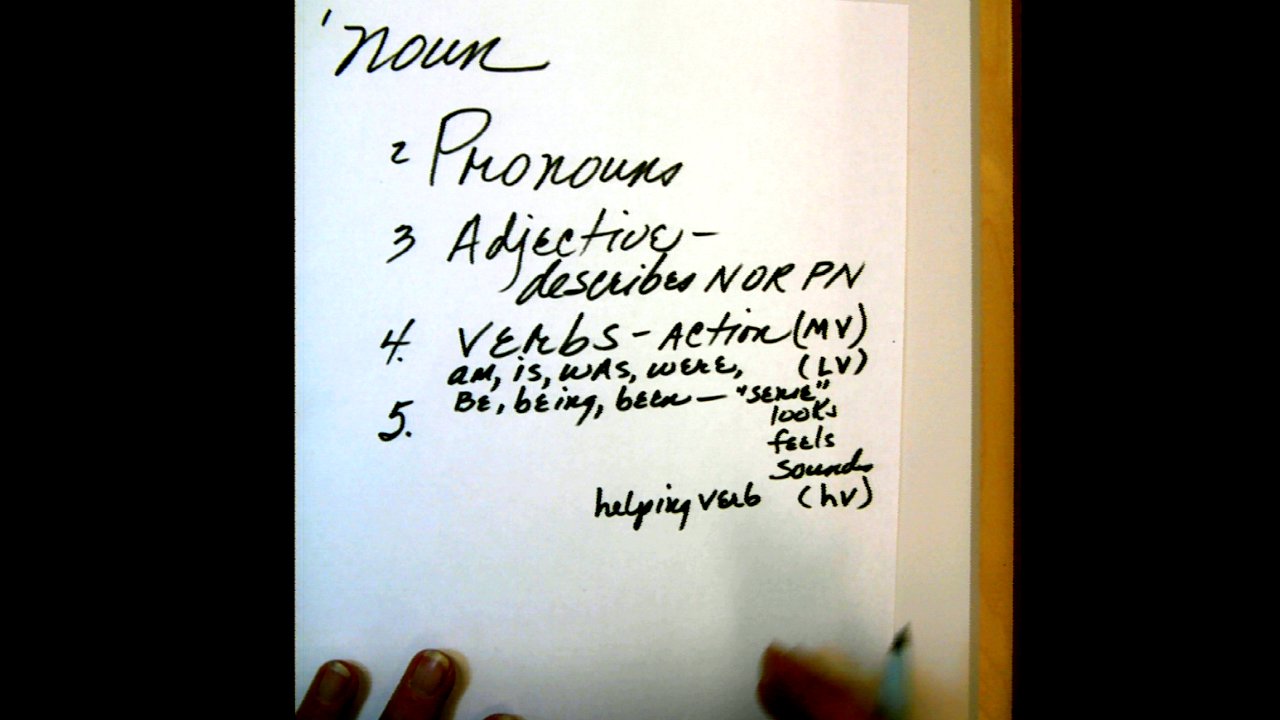 1 noun
2 Pronouns
3 Adjective -
describes N OR PN
4. VERbS - ACtion (MV)
am, is, wAS, were, (LV)
5. BE, being, been — "sense"
looks
feels
sounds
helping verb (hv)